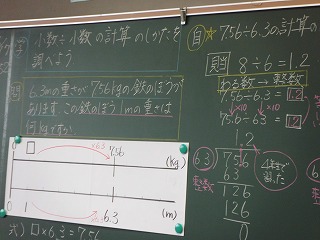 小数÷小数の計算のしかたを
調べよう
6.3mの重さが7.56kgの鉄のぼうが
あります。この鉄のぼう1mの重さは
何kgですか。
0
□
×6.3
7.56
(kg)
0
1
×6.3
6.3
(m)
式) □×6.3=7.56
自 ☆ 7.56÷6.3の計算の
8÷6=1.2
わる数→整数
7.56÷6.3=1.2
↓×10 ↓×10
75.6÷63=1.2
1.2
6.3)7.5.6
63
126
126
0
整数